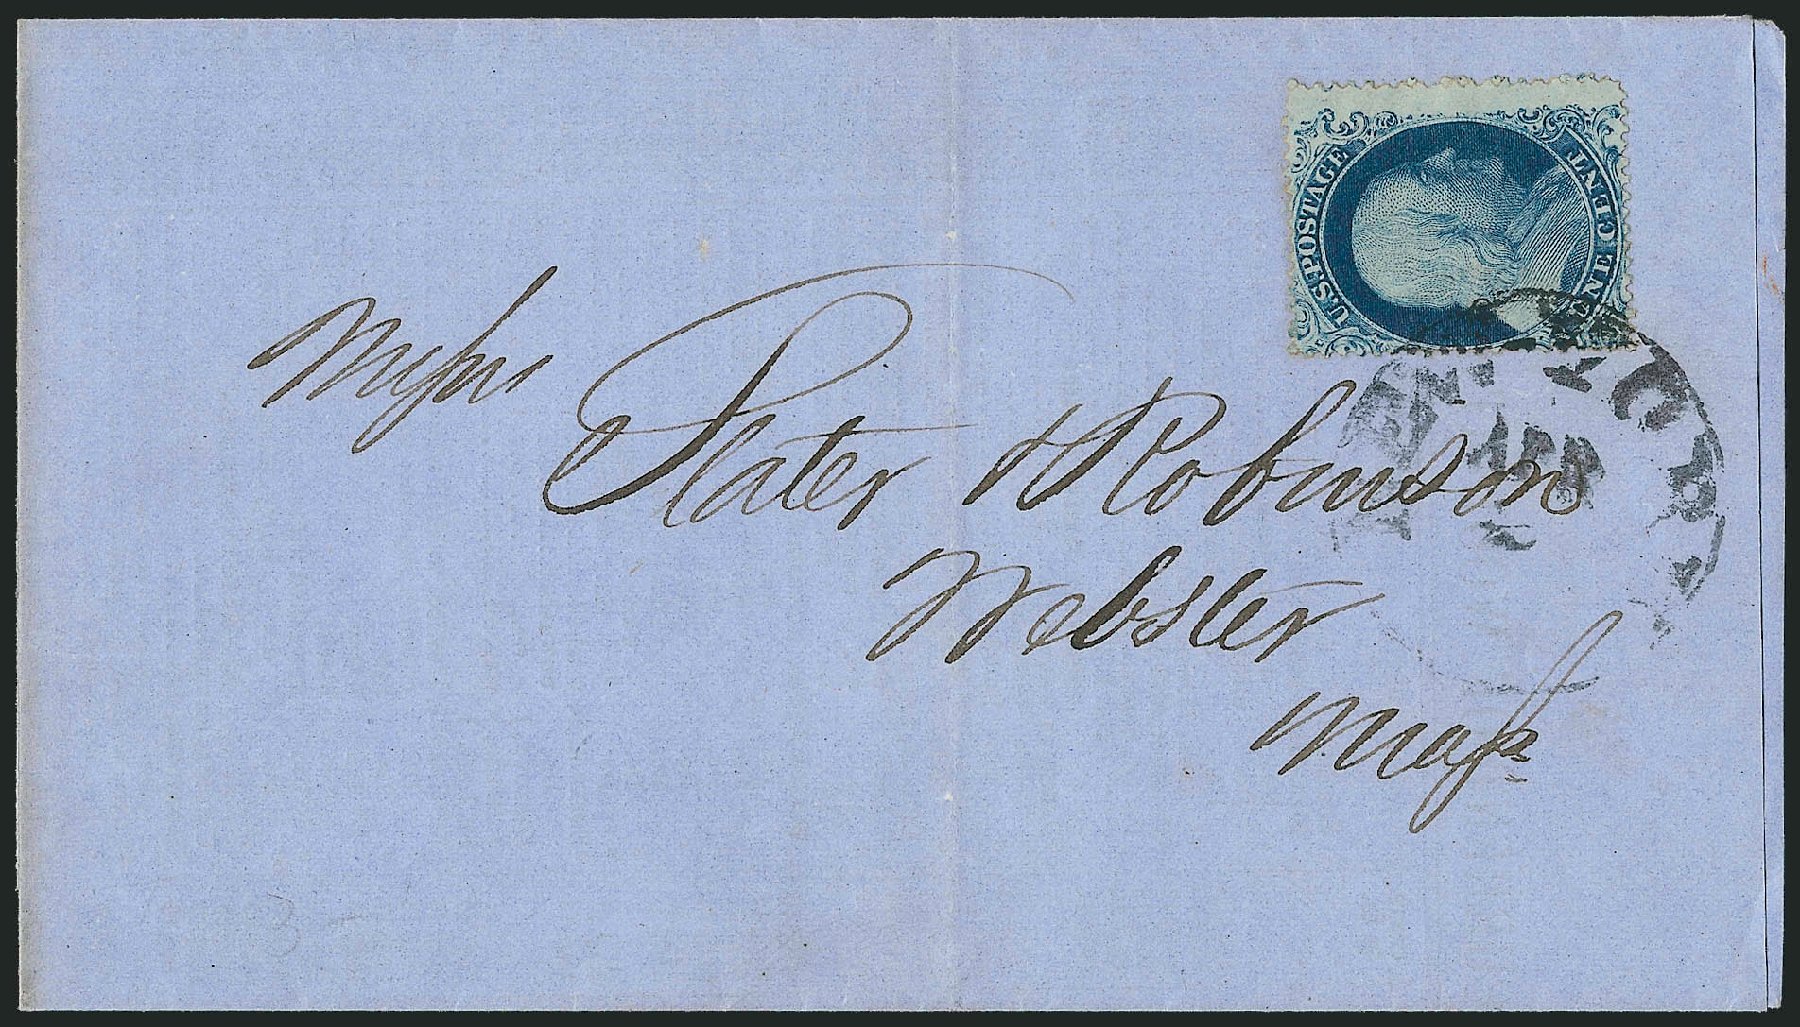 U.S. POSTAGE
ONE CENT
Messrs
Slater & Robinson
Webster
Mass
APR